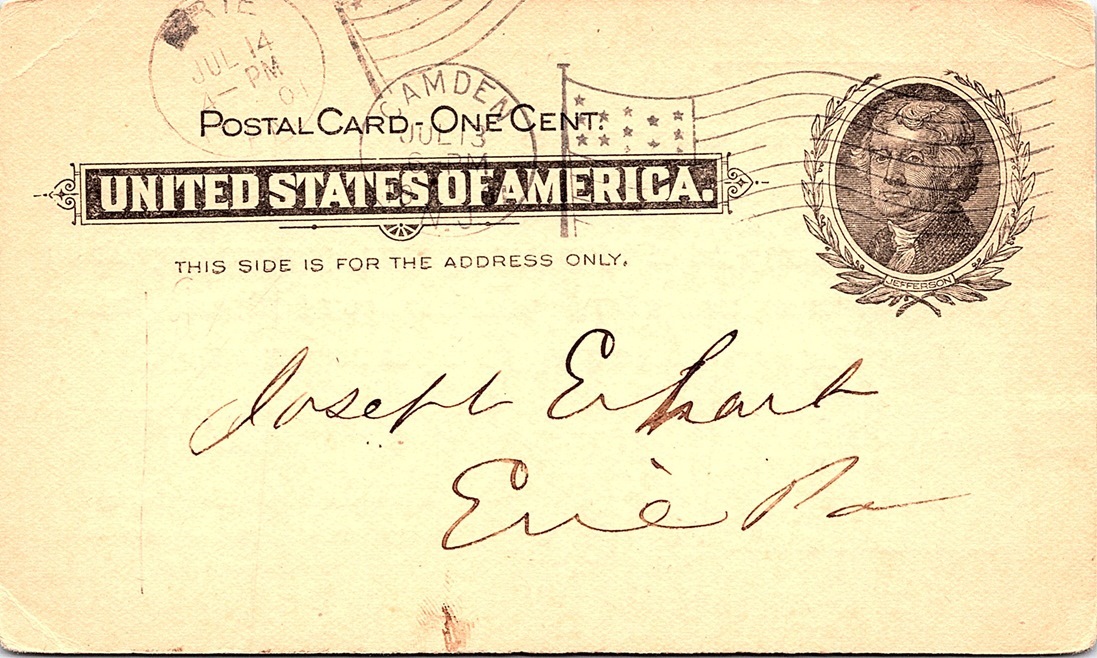 ERIE
JUL 14
4 - PM
01
CAMDEN
JUL 13
PM
N.J.
POSTAL CARD - ONE CENT.
UNITED STATES OF AMERICA.
THIS SIDE IS FOR THE ADDRESS ONLY.
JEFFERSON
Joseph Erhart
Erie Pa